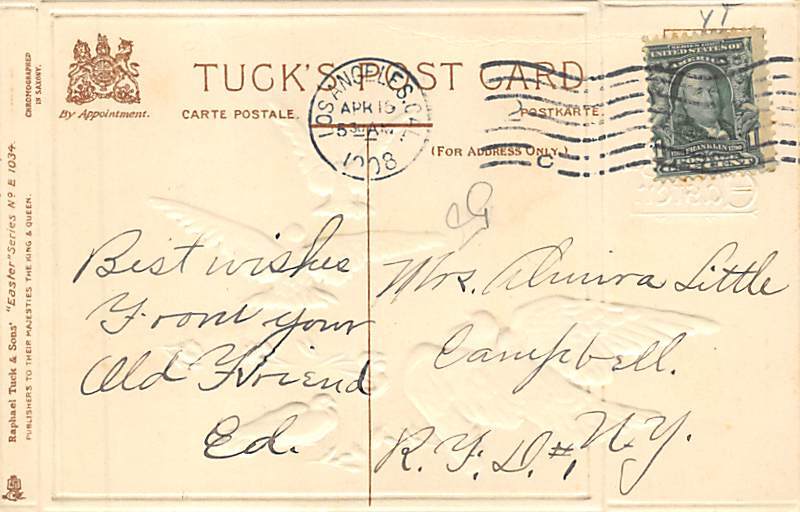 CHROMOGRAPHED
IN SAXONY.
Raphael Tuck & Sons' "Easter" Series Nº E 1034.
PUBLISHERS TO THEIR MAJESTIES THE KING & QUEEN.
By Appointment.
TUCK'S POST CARD
CARTE POSTALE.
POSTKARTE
(FOR ADDRESS ONLY.)
LOS ANGELES, CAL.
APR 15
5 30 AM
1908
C
SERIES 1902
UNITED STATES OF
AMERICA
FRANKLIN
POSTAGE
1 CENT
Best wishes
From your
Old Friend
Ed.
Mrs. Almira Little
Campbell.
R. F. D. #1, N.Y.